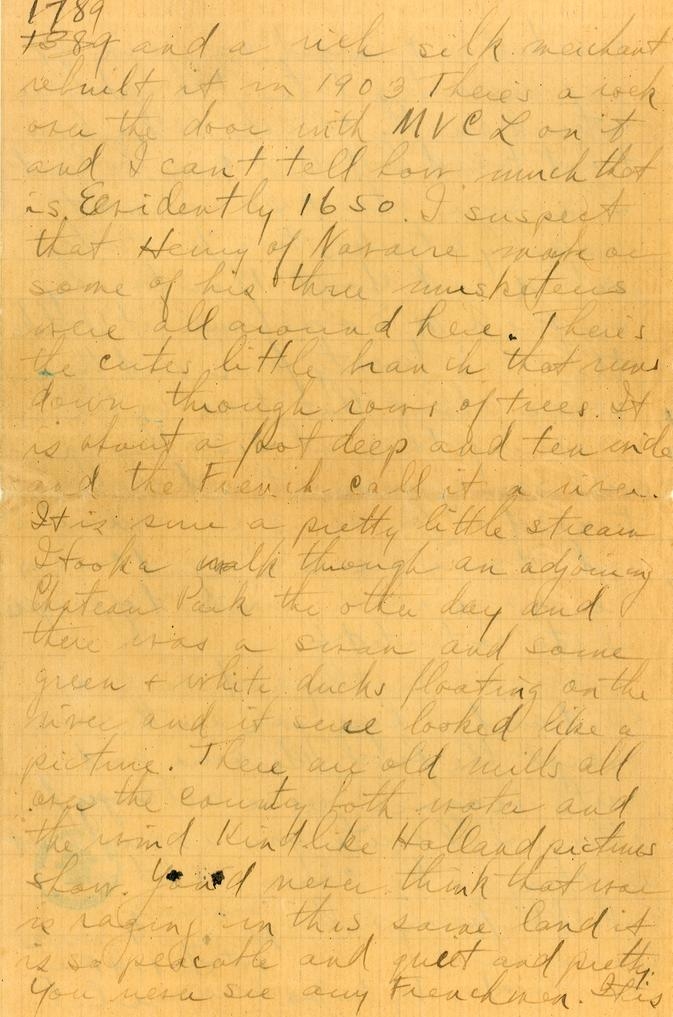 1789
1389 and a rich silk merchant
rebuilt it in 1903 There's a rock
over the door with MVCL on it
and I can't tell how much that
is. Evidently 1650. I suspect
that Henry of Navarre or
some of his three musketeers
were all around here. There's
the cutes little branch that runs
down through rows of trees. It
is about a foot deep and ten wide
and the French call it a river.
It is sure a pretty little stream
I took a walk through an adjoining
Chateau Park the other day and
there was a swan and some
green & white ducks floating on the
river and it sure looked like a
picture. There are old mills all
over the country both water and
the wind kind like Holland pictures
show. You'd never think that war
is raging in this same land it
is so peacable and quiet and pretty.
You never see any Frenchmen. It is